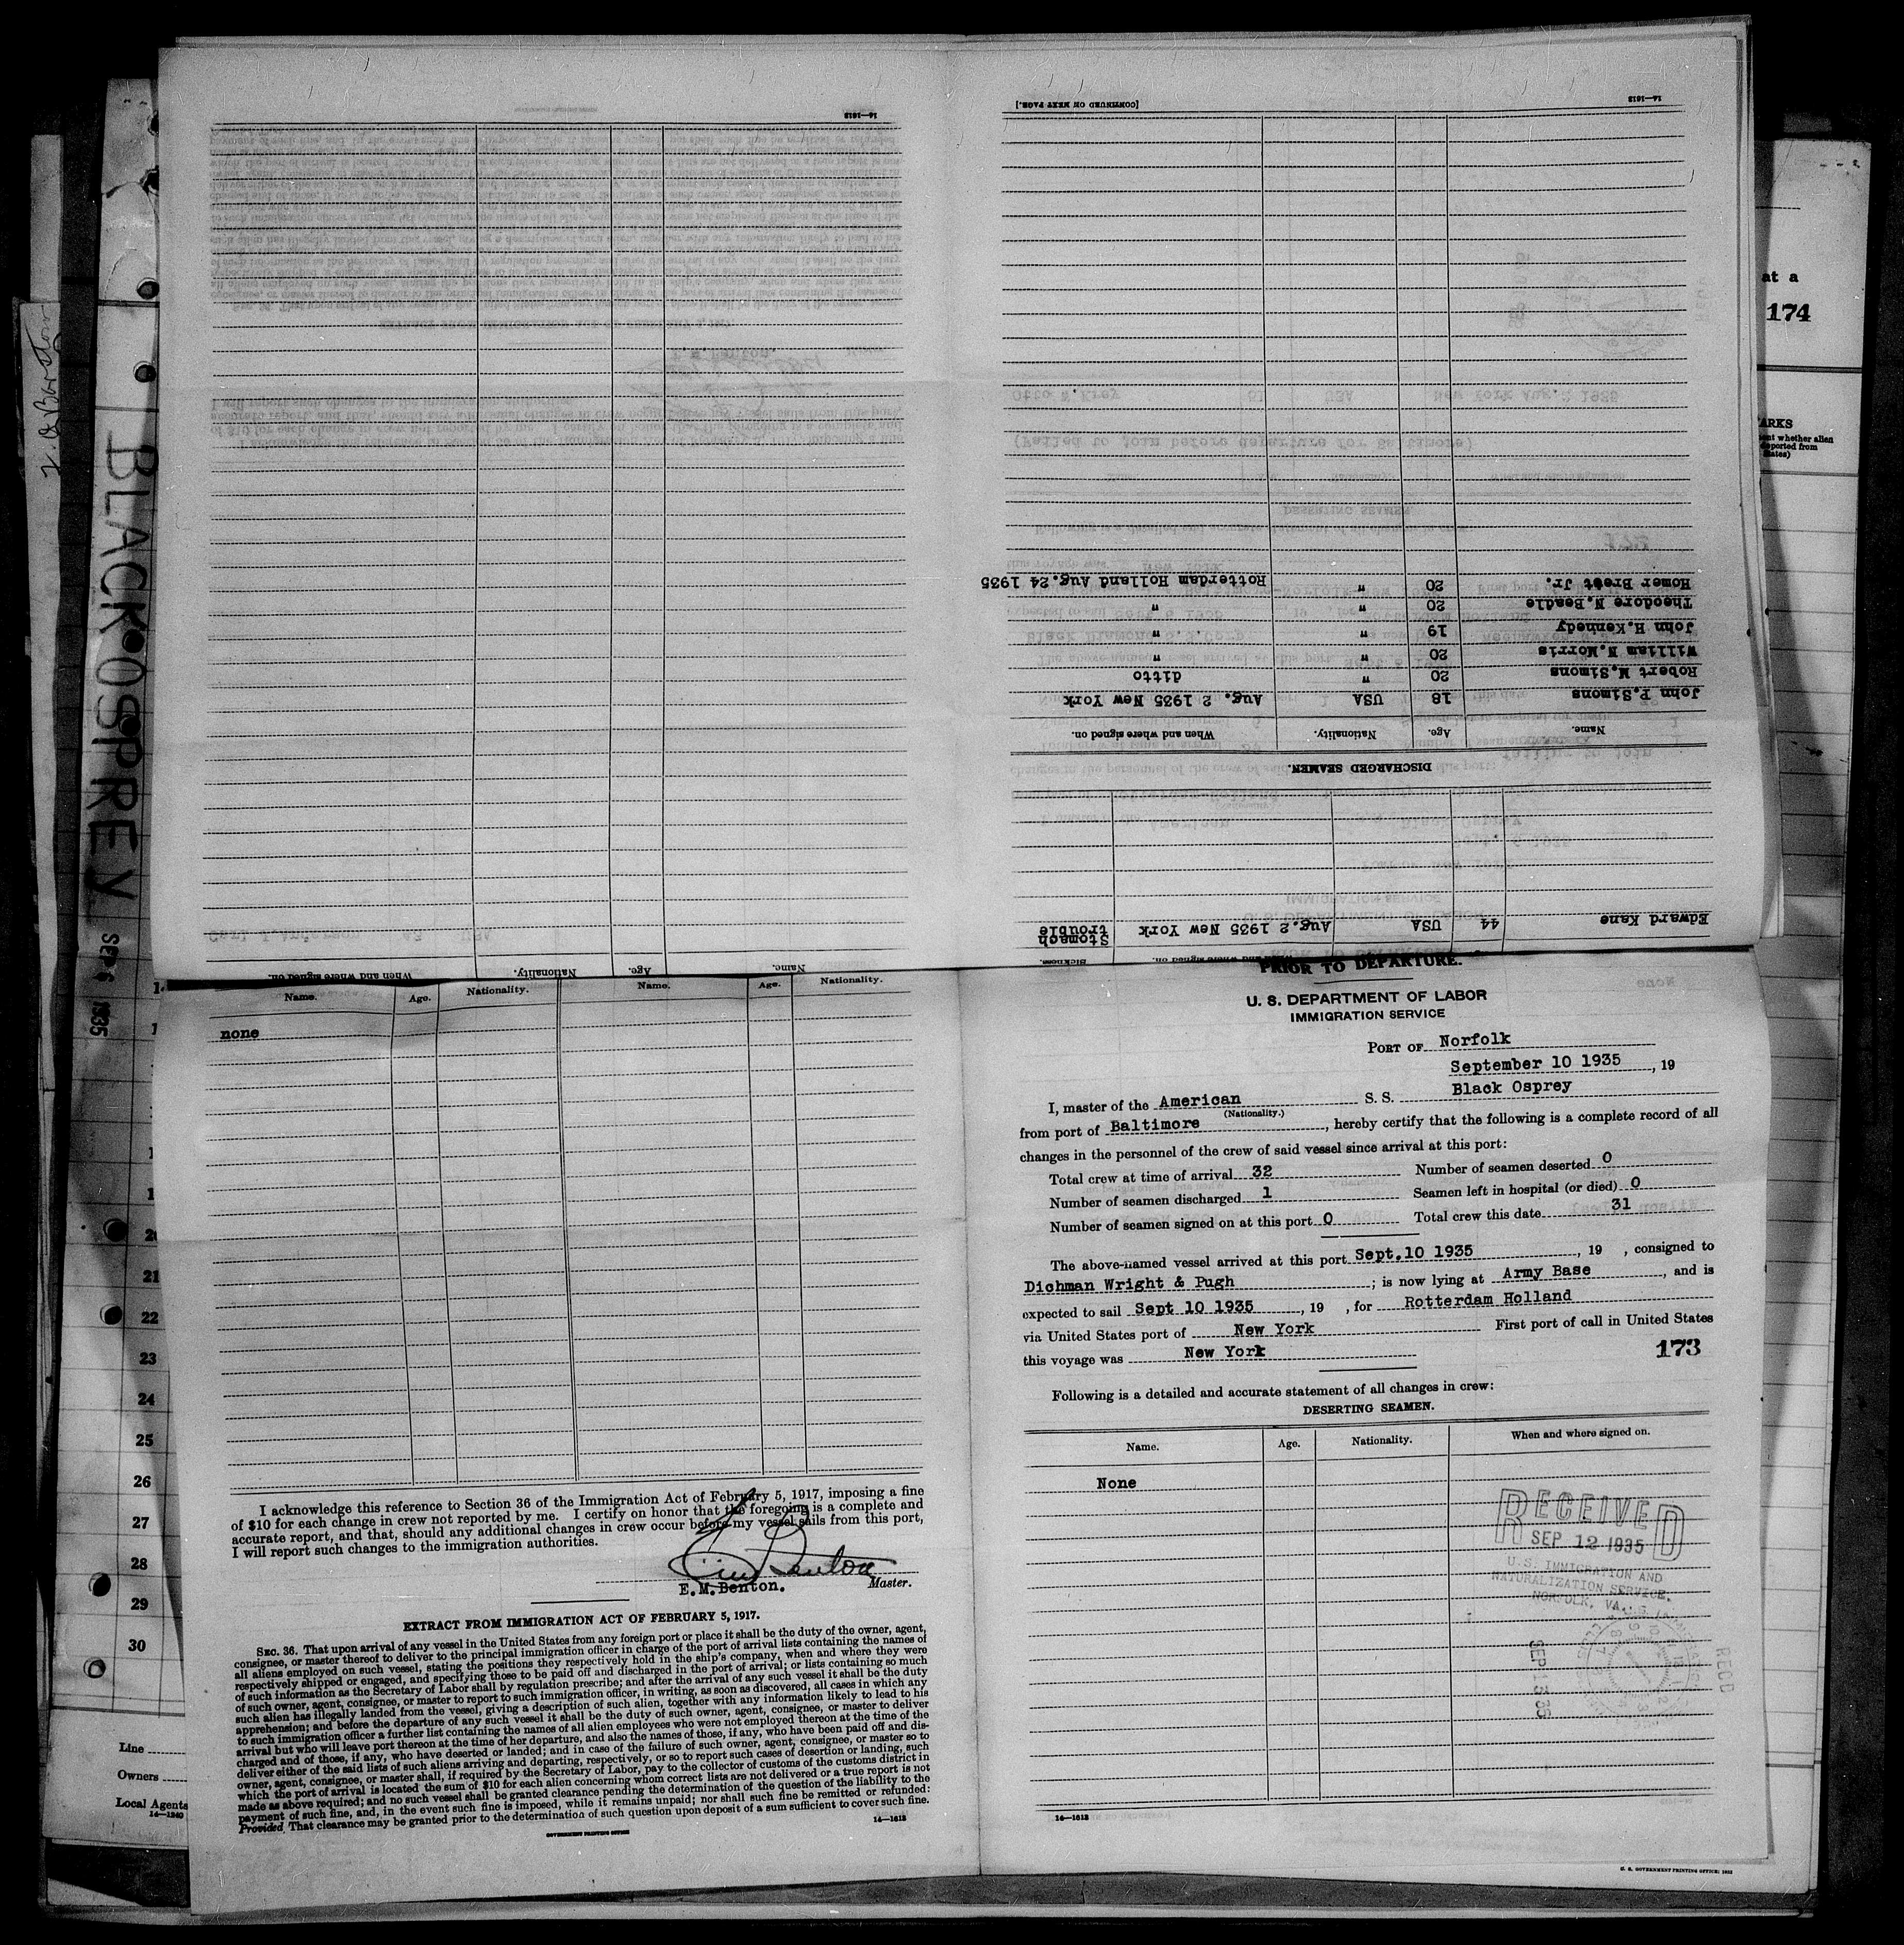 BLACK OSPREY
SEP 6 1935
at a
174
14—1613
When and where signed on.
Nationality.
Age.
Name.
[CONTINUED ON NEXT PAGE.]
14—1613
Edward Kane 44 USA Aug. 2 1935 New York Stomach trouble
DISCHARGED SEAMEN.
Name. Age. Nationality. When and where signed on.
John P. Simons 18 USA Aug. 2 1935 New York
Robert M. Simons 20 " ditto
William N. Morris 20 " "
John H. Kennedy 19 " "
Theodore N. Beadle 20 " "
Homer Brest Jr. 20 " Rotterdam Holland Aug. 24 1935
Name. Age. Nationality. Name. Age. Nationality.
none
I acknowledge this reference to Section 36 of the Immigration Act of February 5, 1917, imposing a fine
of $10 for each change in crew not reported by me. I certify on honor that the foregoing is a complete and
accurate report, and that, should any additional changes in crew occur before my vessel sails from this port,
I will report such changes to the immigration authorities.
E.M.Benton. Master.
EXTRACT FROM IMMIGRATION ACT OF FEBRUARY 5, 1917.
SEC. 36. That upon arrival of any vessel in the United States from any foreign port or place it shall be the duty of the owner, agent,
consignee, or master thereof to deliver to the principal immigration officer in charge of the port of arrival lists containing the names of
all aliens employed on such vessel, stating the positions they respectively hold in the ship's company, when and where they were
respectively shipped or engaged, and specifying those to be paid off and discharged in the port of arrival; or lists containing so much
of such information as the Secretary of Labor shall by regulation prescribe; and after the arrival of any such vessel it shall be the duty
of such owner, agent, consignee, or master to report to such immigration officer, in writing, as soon as discovered, all cases in which any
such alien has illegally landed from the vessel, giving a description of such alien, together with any information likely to lead to his
apprehension; and before the departure of any such vessel it shall be the duty of such owner, agent, consignee, or master to deliver
to such immigration officer a further list containing the names of all alien employees who were not employed thereon at the time of the
arrival but who will leave port thereon at the time of her departure, and also the names of those, if any, who have been paid off and dis-
charged and of those, if any, who have deserted or landed; and in case of the failure of such owner, agent, consignee, or master so to
deliver either of the said lists of such aliens arriving and departing, respectively, or so to report such cases of desertion or landing, such
owner, agent, consignee, or master shall, if required by the Secretary of Labor, pay to the collector of customs of the customs district in
which the port of arrival is located the sum of $10 for each alien concerning whom correct lists are not delivered or a true report is not
made as above required; and no such vessel shall be granted clearance pending the determination of the question of the liability to the
payment of such fine, and, in the event such fine is imposed, while it remains unpaid; nor shall such fine be remitted or refunded:
Provided, That clearance may be granted prior to the determination of such question upon deposit of a sum sufficient to cover such fine.
GOVERNMENT PRINTING OFFICE
14—1613
PRIOR TO DEPARTURE.
U. S. DEPARTMENT OF LABOR
IMMIGRATION SERVICE
PORT OF Norfolk
September 10 1935, 19
I, master of the American S. S. Black Osprey
(Nationality.)
from port of Baltimore, hereby certify that the following is a complete record of all
changes in the personnel of the crew of said vessel since arrival at this port:
Total crew at time of arrival 32 Number of seamen deserted 0
Number of seamen discharged 1 Seamen left in hospital (or died) 0
Number of seamen signed on at this port 0 Total crew this date 31
The above-named vessel arrived at this port Sept.10 1935, 19 , consigned to
Dichman Wright & Pugh; is now lying at Army Base, and is
expected to sail Sept 10 1935, 19 , for Rotterdam Holland
via United States port of New York First port of call in United States
this voyage was New York
173
Following is a detailed and accurate statement of all changes in crew:
DESERTING SEAMEN.
Name. Age. Nationality. When and where signed on.
None
RECEIVED
SEP 12 1935
U.S. IMMIGRATION AND
NATURALIZATION SERVICE.
NORFOLK, VA.
REC'D
14—1613
U. S. GOVERNMENT PRINTING OFFICE: 1932
21
22
23
24
25
26
27
28
29
30
Line
Owners
Local Agents
14—1240